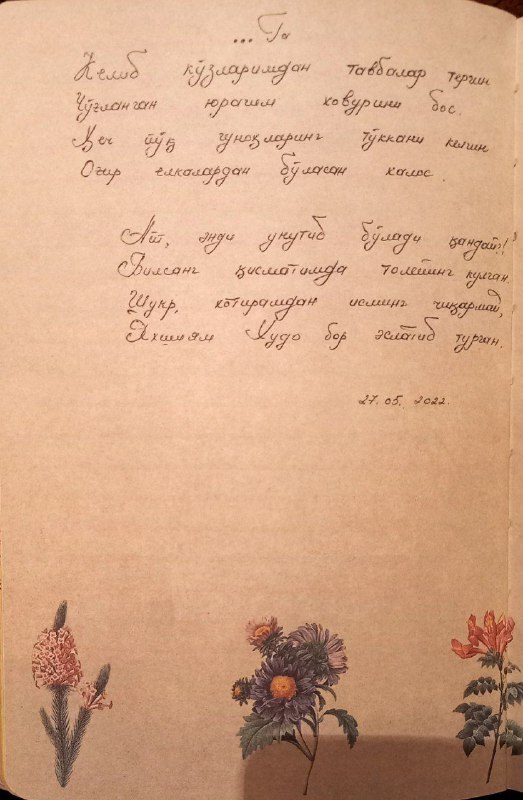 ... Га
Келиб кўзларимдан тавбалар тергин
Чўғланган юрагим ховурини бос.
Ҳеч йўқ гуноҳларинг тўккани келгин
Оғир елкалардан бўласан халос.
Айт, энди унутиб бўлади қандай?!
Билсанг қисматимда толейинг кулган.
Шукр, хотирамдан исминг чиқармай,
Яхшиям Худо бор эслатиб турган.
27.05.2022.